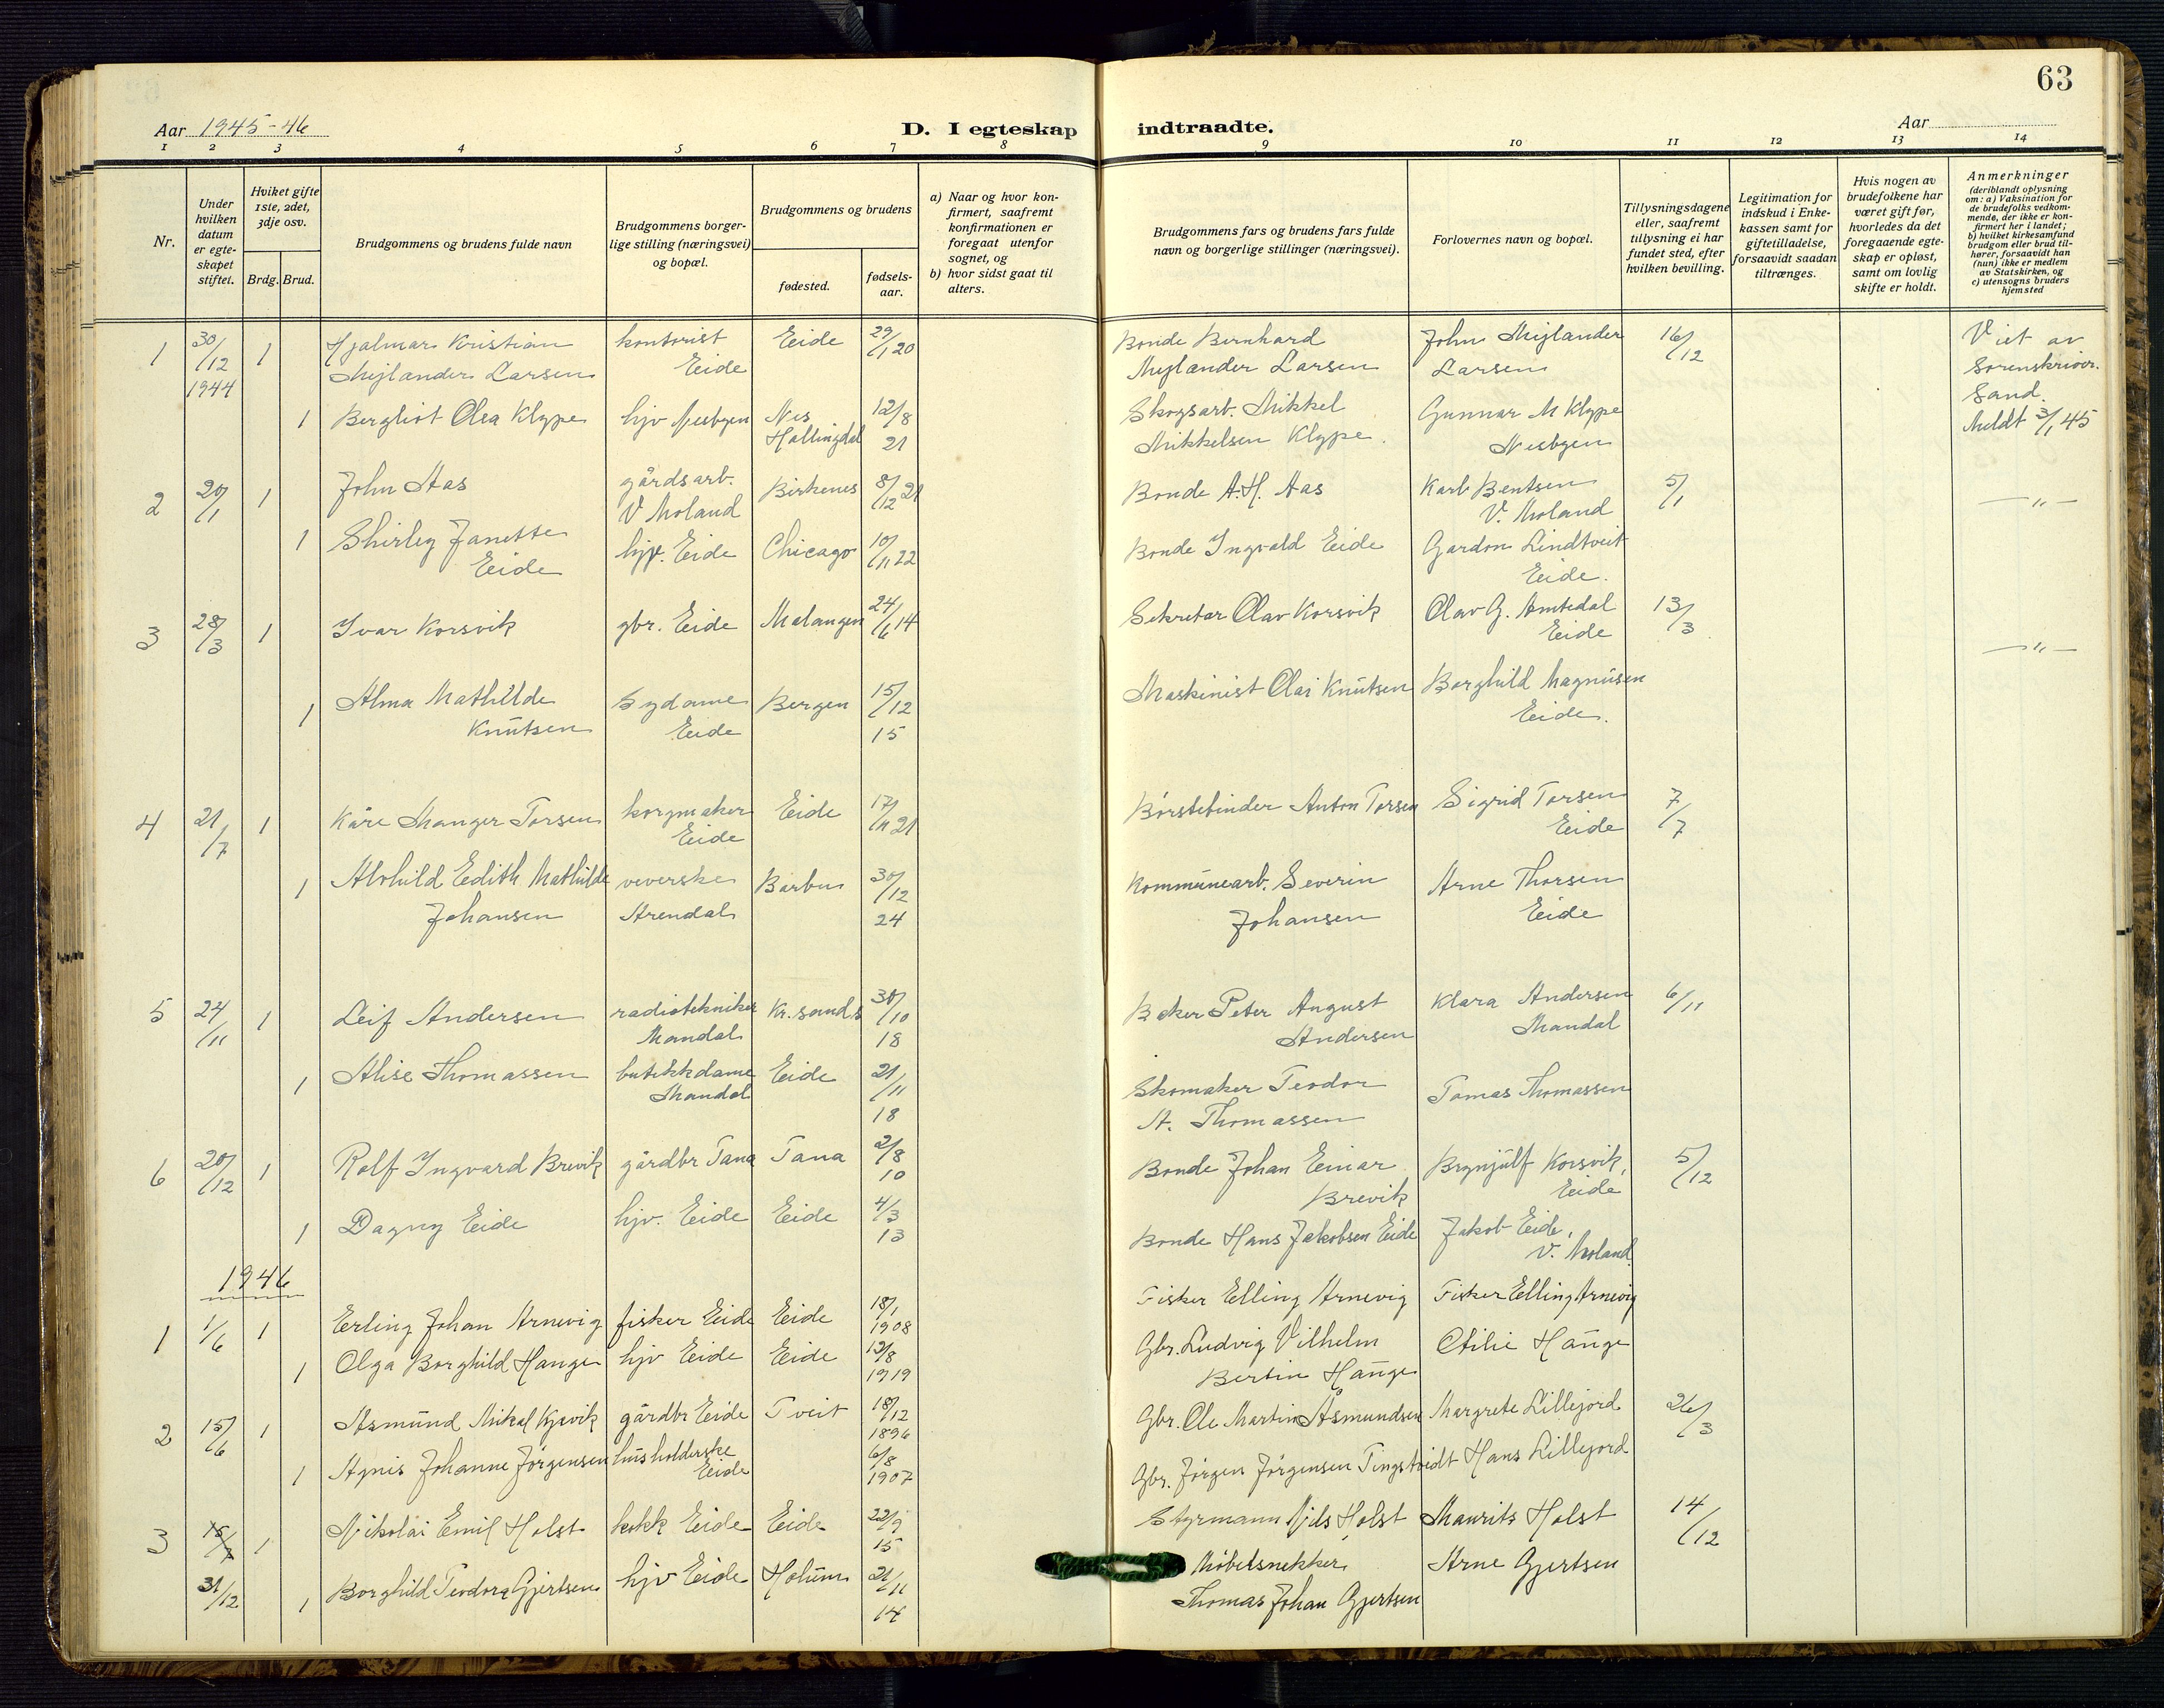 63
Aar 1945-46
D. I egteskap indtraadte.
Aar
1 2 3 4 5 6 7 8 9 10 11 12 13 14
Nr.
Under hvilken datum er egte-skapet stiftet.
Hviket gifte 1ste, 2det, 3dje osv.
Brdg. Brud.
Brudgommens og brudens fulde navn
Brudgommens borger-lige stilling (næringsvei) og bopæl.
Brudgommens og brudens
fødested.
fødsels-aar.
a) Naar og hvor kon-firmert, saafremt konfirmationen er foregaat utenfor sognet, og
b) hvor sidst gaat til alters.
Brudgommens fars og brudens fars fulde navn og borgerlige stillinger (næringsvei).
Forlovernes navn og bopæl.
Tillysningsdagene eller, saafremt tillysning ei har fundet sted, efter hvilken bevilling.
Legitimation for indskud i Enke-kassen samt for giftetilladelse, forsaavidt saadan tiltrænges.
Hvis nogen av brudefolkene har været gift før, hvorledes da det foregaaende egte-skap er opløst, samt om lovlig skifte er holdt.
Anmerkninger (deriblandt oplysning om: a) Vaksination for de brudefolks vedkom-mende, der ikke er kon-firmert her i landet; b) hvilket kirkesamfund brudgom eller brud til-hører, forsaavidt han (hun) ikke er medlem av Statskirken, og c) utensogns bruders hjemsted
1 30/12 1944 1 Hjalmar Kristian Mejlænder Larsen kontorist Eide Eide 29/1 20 Bonde Bernhard Mejlænder Larsen John Mejlænder Larsen 16/12 Viet av Sorenskriver. Sand. Meldt 3/1 45
1 Bergliot Olea Klype hjv Nesbyen Nes Hallingdal 12/8 21 Skogsarb. Mikkel Mikkelsen Klype. Gunnar M Klype Nesbyen
2 20/1 1 John Aas gårdsarb. V Moland Birkenes 8/12 21 Bonde A.H. Aas Karl Bentsen V. Moland 5/1 — " —
1 Shirley Janette Eide hjv. Eide Chicago 10/11 22 Bonde Ingvald Eide Gardon Lindtveit Eide.
3 28/3 1 Ivar Korsvik gbr. Eide Malangen 24/6 14 Sekretær Olav Korsvik Olav G. Amtedal Eide 13/3 — " —
1 Alma Mathilde Knutsen Sydame Eide Bergen 15/12 15 Maskinist Olai Knutsen Borghild Magnusen Eide.
4 21/7 1 Kåre Manger Torsen korgmaker Eide Eide 17/11 21 Børstebinder Anton Torsen Sigrid Torsen Eide 7/7
1 Alvhild Edith Mathilde Johansen veverske Arendal Barbu 30/12 24 Kommunearb. Severin Johansen Arne Thorsen Eide
5 24/11 1 Leif Andersen radiotekniker Mandal Kr.sand S 30/10 18 Baker Peter August Andersen Klara Andersen Mandal 6/11
1 Alise Thomassen butikkdame Mandal Eide 21/11 18 Skomaker Teodor A. Thomassen Tomas Thomassen
6 20/12 1 Rolf Ingvard Brevik gårdbr Tana Tana 2/8 10 Bonde Johan Einar Brevik Brynjulf Korsvik, Eide 5/12
1 Dagny Eide hjv. Eide Eide 4/3 13 Bonde Hans Jakobsen Eide Jakob Eide, V. Moland
1946
1 1/6 1 Erling Johan Arnevig fisker Eide Eide 18/1 1908 Fisker Elling Arnevig Fisker Elling Arnevig
1 Olga Borghild Hauge hjv Eide Eide 12/8 1919 Gbr. Ludvig Vilhelm Bertin Hauge Otilie Hauge
2 15/6 1 Asmund Mikal Kjevik gårdbr Eide Tveit 18/12 1896 Gbr. Ole Martin Åsmundsen Margrete Lillejord 26/3
1 Agnis Johanne Jörgensen husholderske Eide 6/8 1907 Gbr. Jörgen Jörgensen Tingstveidt Hans Lillejord
3 31/12 1 Nikolai Emil Holst kokk Eide Eide 22/9 15 Styrmann Nils Holst Maurits Holst 14/12
1 Borghild Teodora Gjertsen hjv Eide Holum 21/11 14 Møbelsnekker Thomas Johan Gjertsen Arne Gjertsen